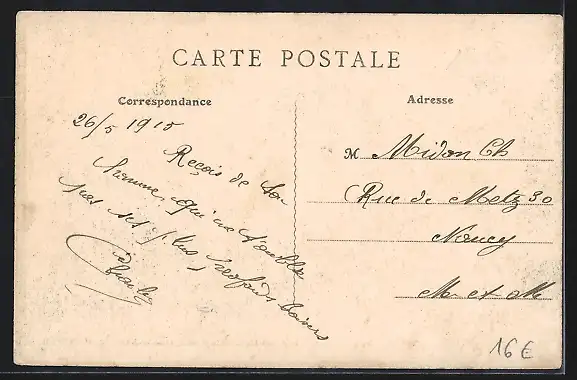 CARTE POSTALE
Correspondance
Adresse
26/5 1915
Reçois de ta
femme, qui ne t'oublie
pas ses plus profonds baisers
Charley
M Midon Ch
Rue de Metz 30
Nancy
M et M
16€